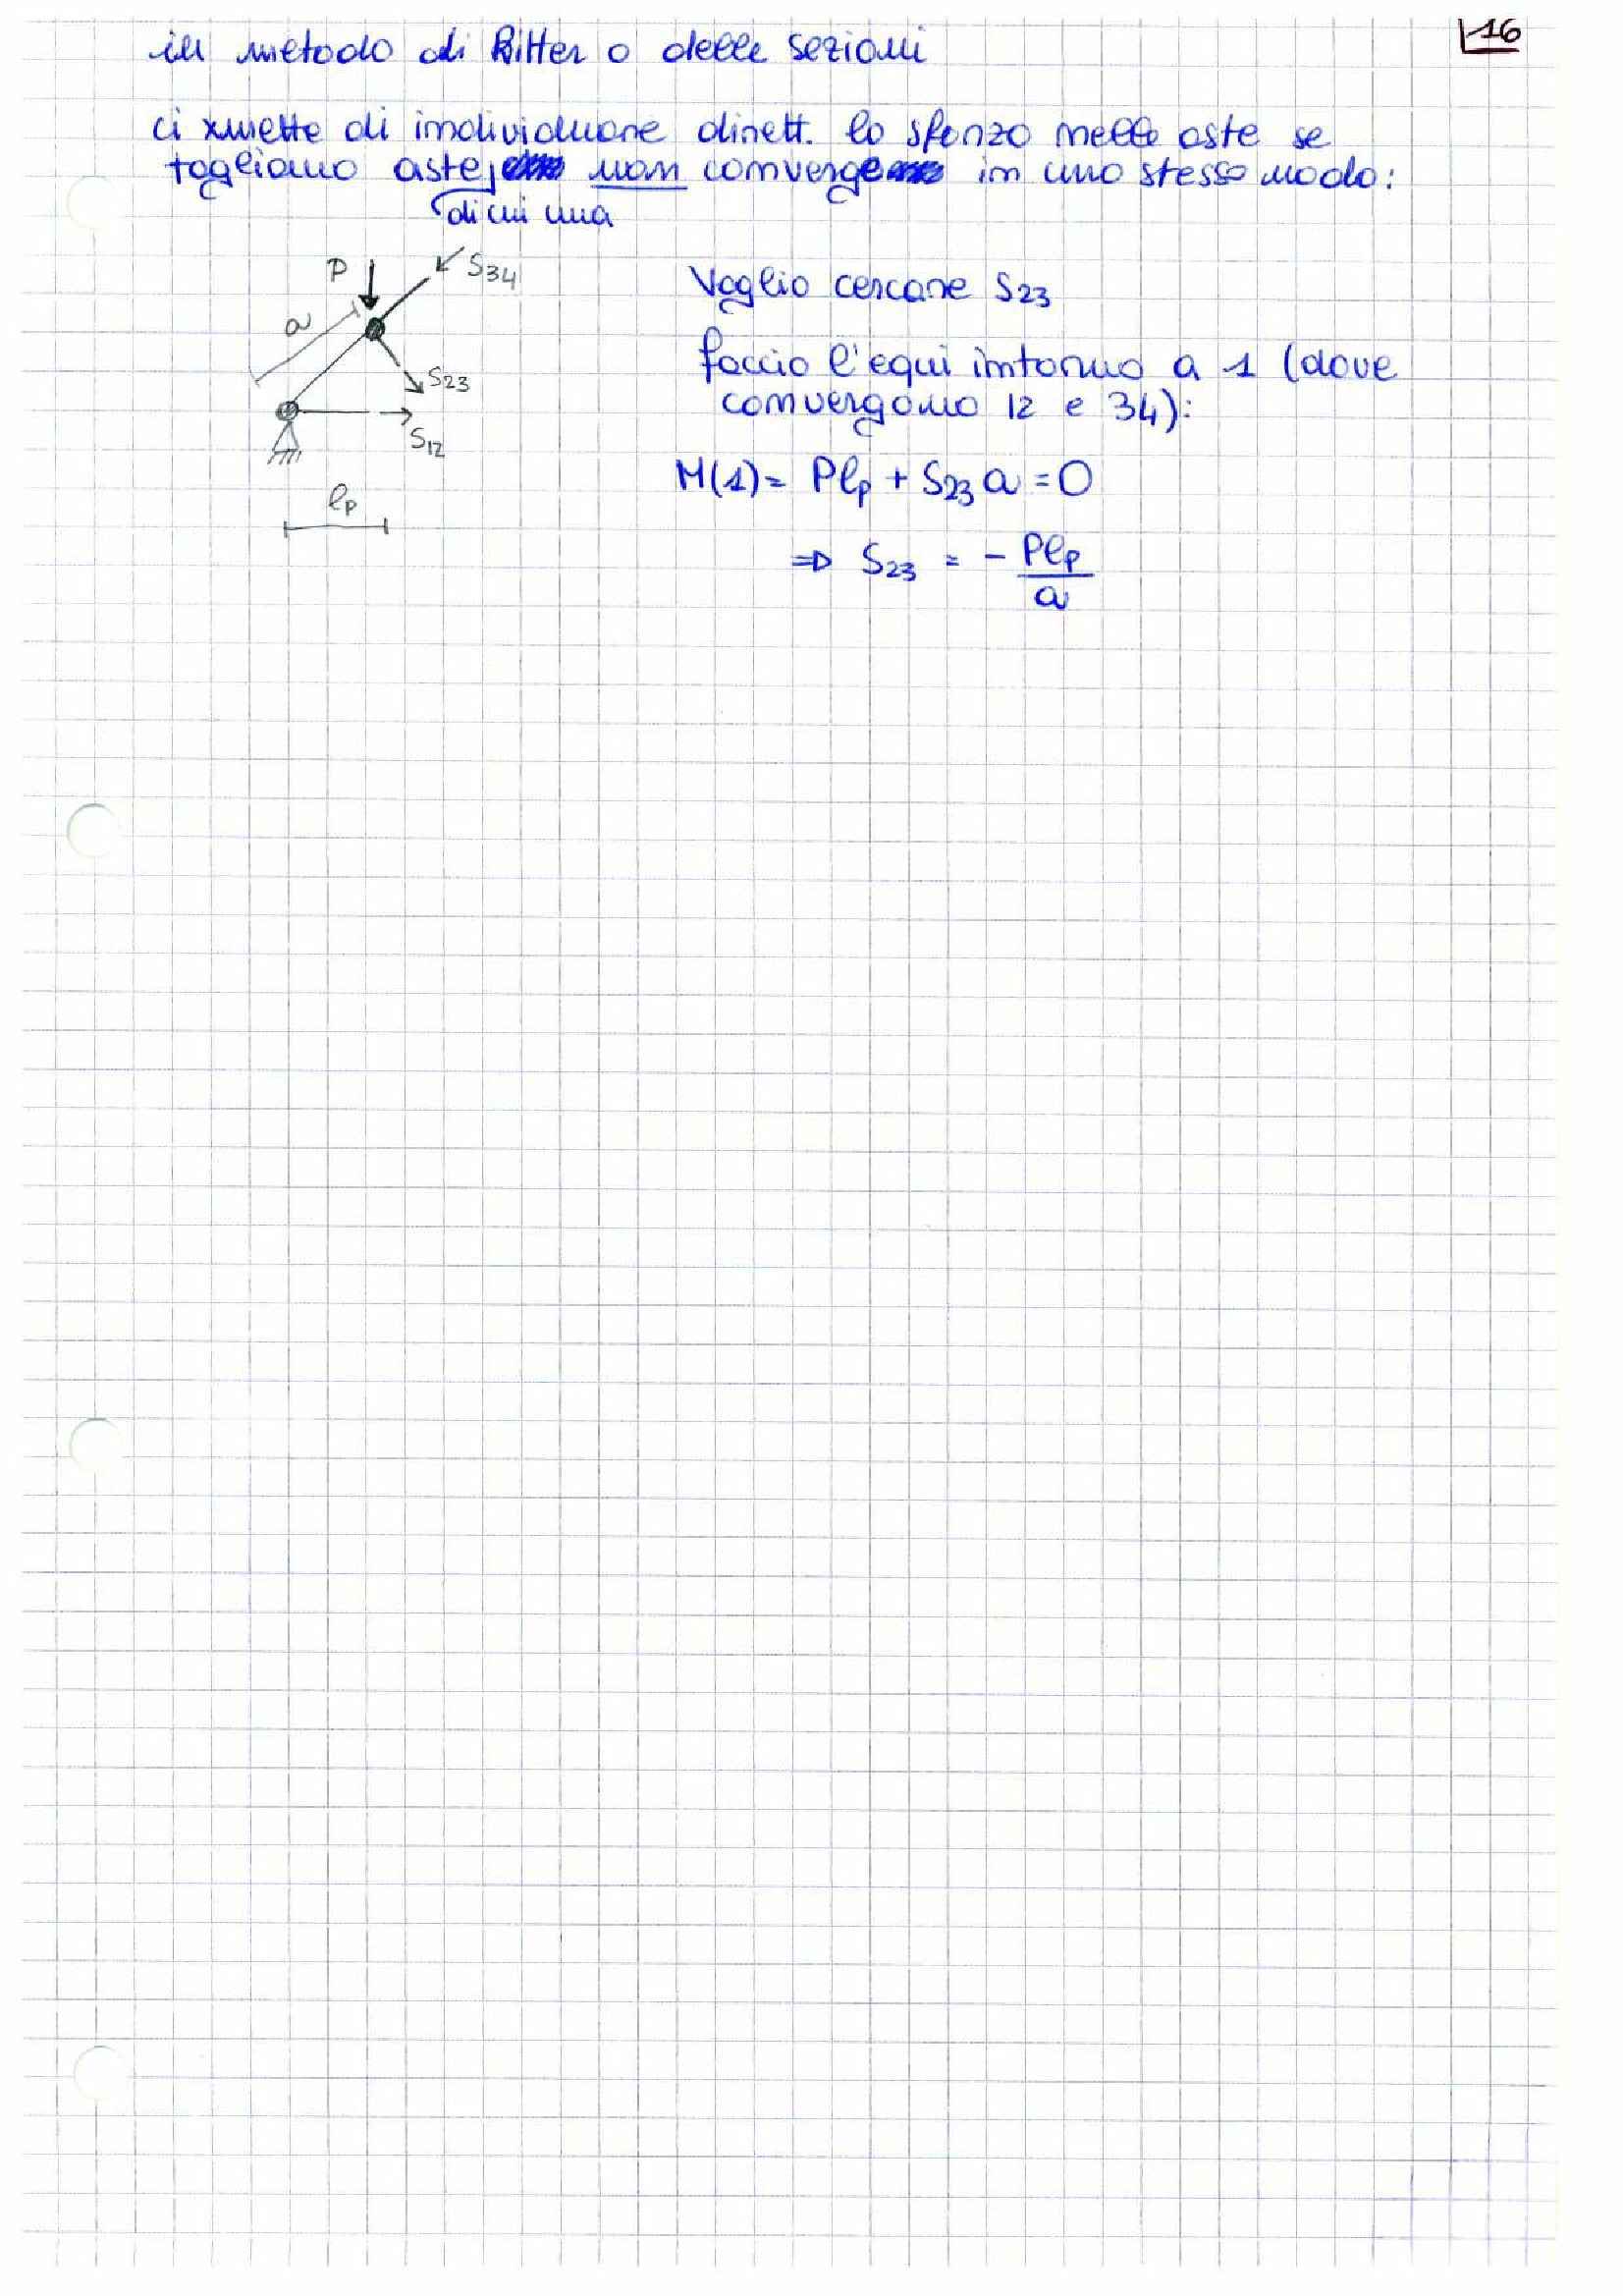 16
il metodo di Ritter o delle sezioni
ci xmette di individuare dirett. lo sforzo nelle aste se
togliamo aste, di cui una non converge in uno stesso nodo:
P
S34
a
S23
S12
lp
Voglio cercare S23
faccio l'equi intorno a 1 (dove
convergono 12 e 34):
M(1) = Plp + S23 a = 0
⇒ S23 = - Plp / a